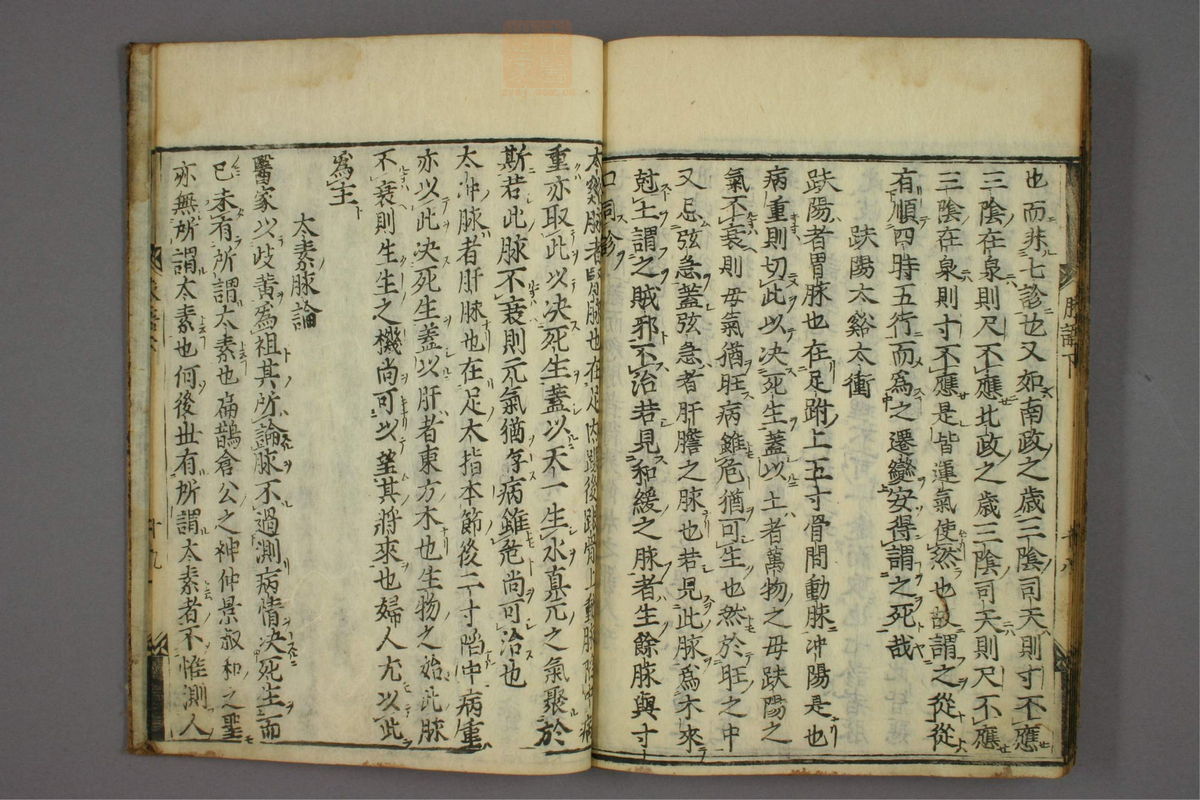 也而非七診也又如南政之歳三陰司天則寸不應
三陰在泉則尺不應北政之歳三陰司天則尺不應
三陰在泉則寸不應是皆運氣使然也故謂之從從
有順四時五行而爲之遷變安得謂之死哉
趺陽太谿太衝
趺陽者胃脉也在足跗上五寸骨間動脉冲陽是也
病重則切此以决死生蓋以土者萬物之母趺陽之
氣不衰則母氣猶旺病雖危猶可生也然於旺之中
又忌弦急蓋弦急者肝膽之脉也若見此脉爲木來
尅土謂之賊邪不治若見和緩之脉者生餘脉與寸
口同診
太谿脉者腎脉也在足内踝後跟骨上動脉陷中病
重亦取此以决死生蓋以天一生水真元之氣聚於
斯若此脉不衰則元氣猶存病雖危尚可治也
太冲脉者肝脉也在足太指本節後二寸陷中病重
亦以此决死生蓋以肝者東方木也生物之始此脉
不衰則生生之機尚可以望其將來也婦人尤以此
爲主
太素脉論
醫家以岐黄爲祖其所論脉不過測病情决死生而
已未有所謂太素也扁鵲倉公之神仲景叔和之聖
亦無所謂太素也何後世有所謂太素者不惟測人
脉語下
十八
十九